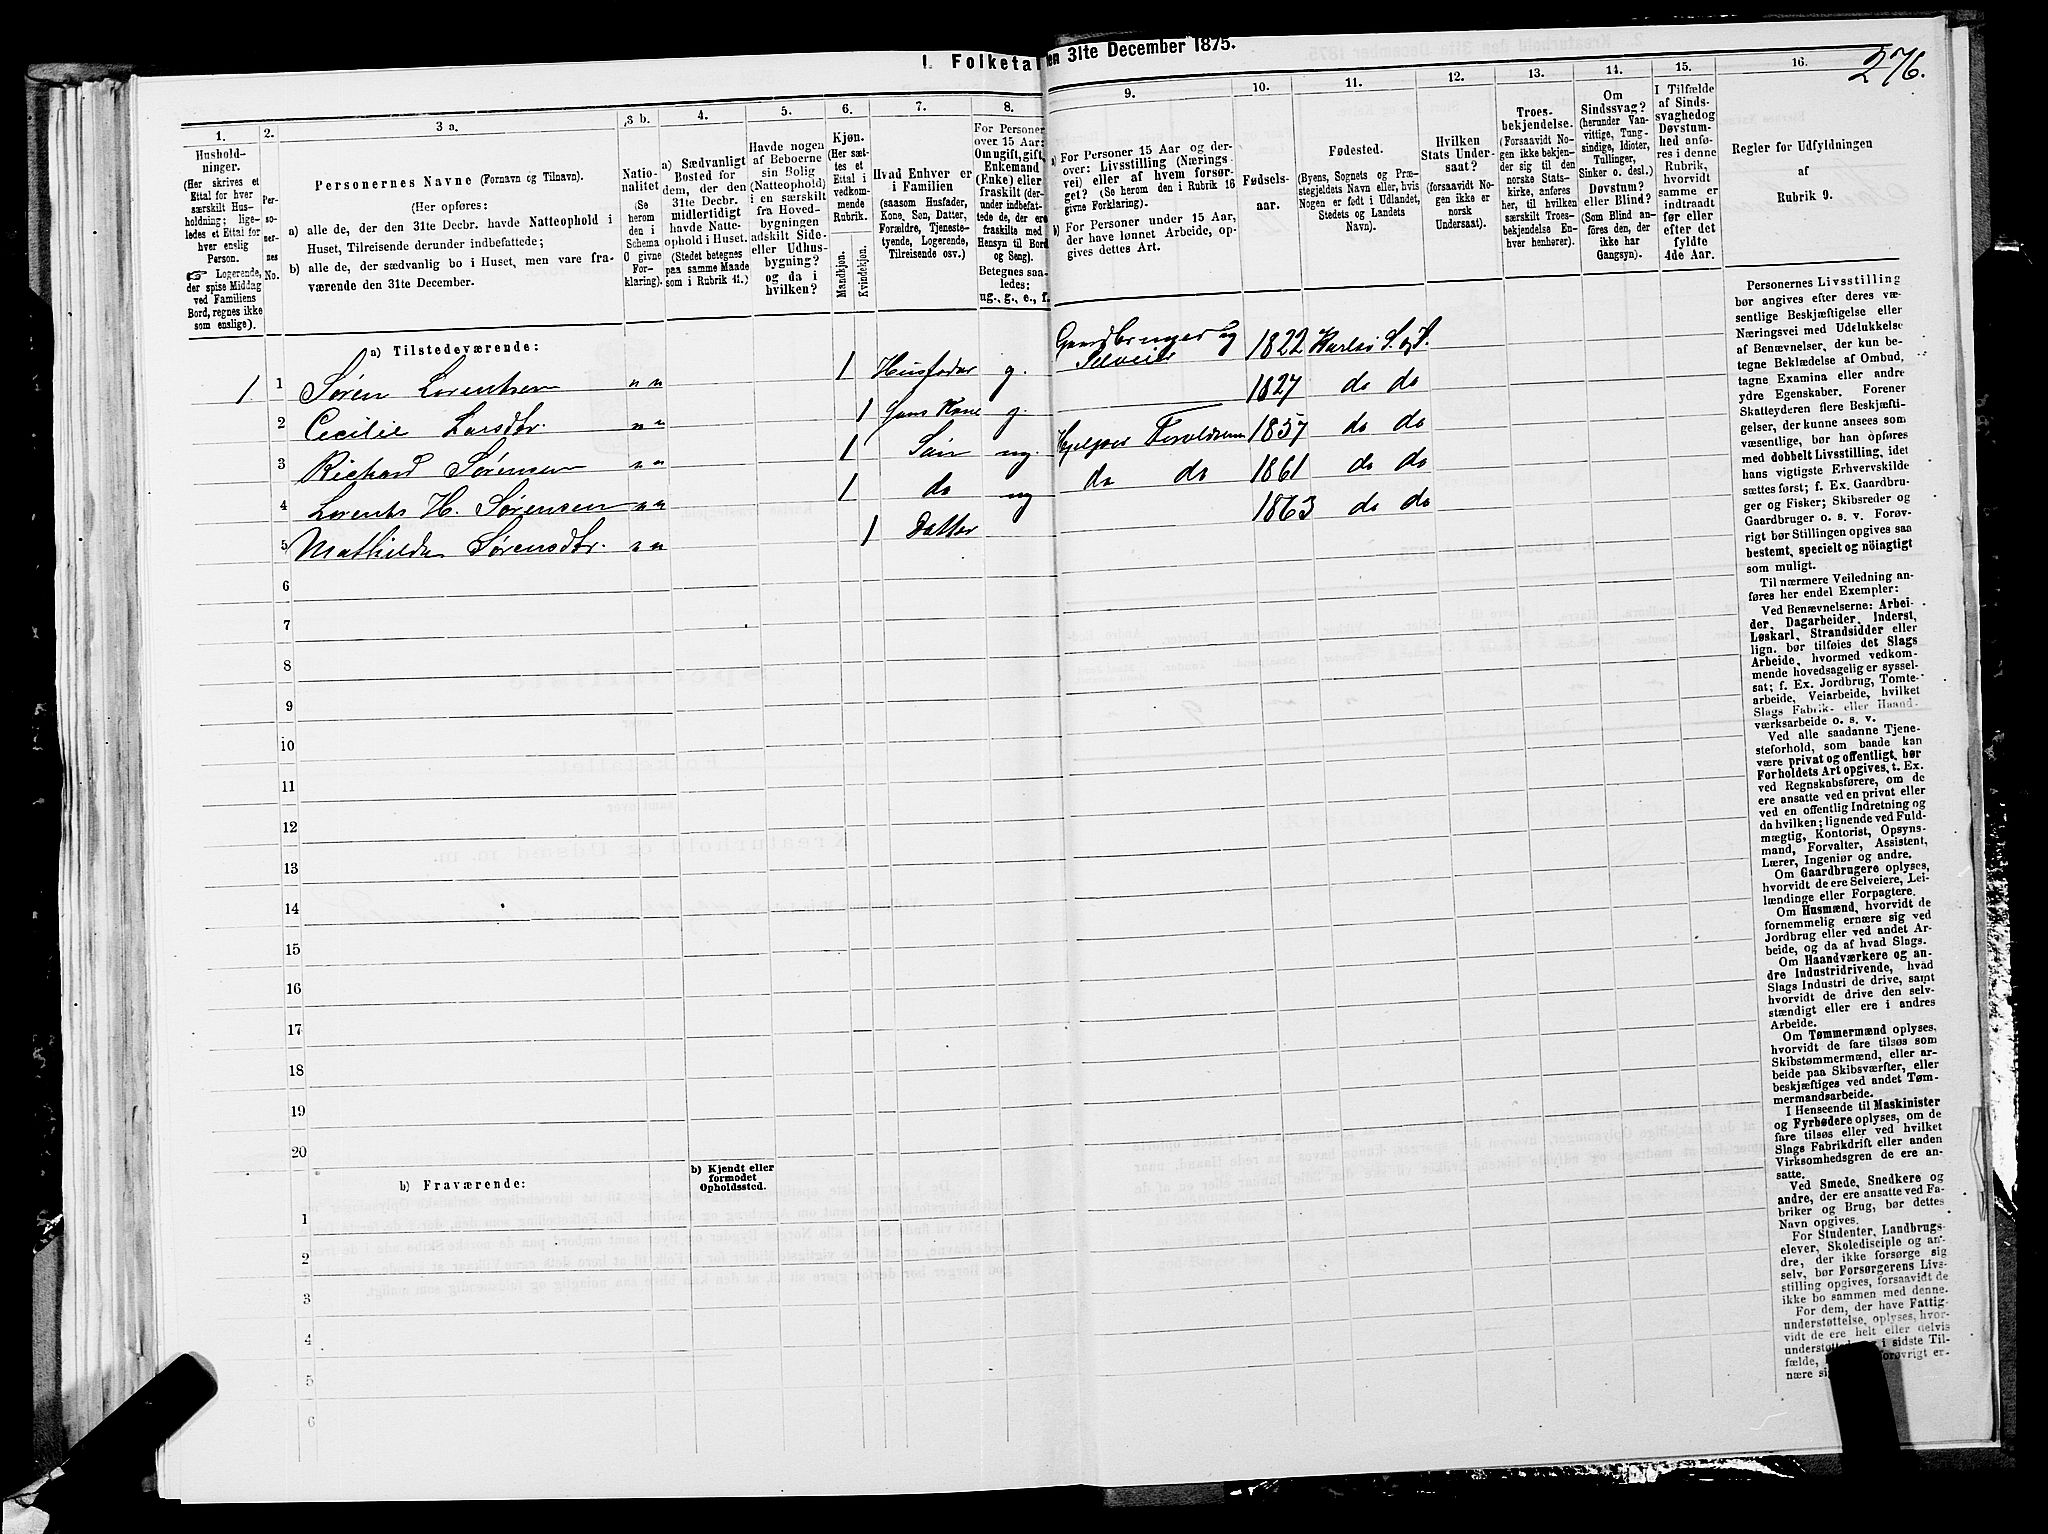 I. Folketal
en 31te December 1875.
276.
1.
Hushold-
ninger.
(Her skrives et
Ettal for hver
særskilt Hus-
holdning; lige-
ledes et Ettal for
hver enslig
Person.
☞ Logerende,
der spise Middag
ved Familiens
Bord, regnes ikke
som enslige).
2.
Per-
so-
ner-
nes
No.
3 a.
Personernes Navne (Fornavn og Tilnavn).
(Her opføres:
a) alle de, der den 31te Decbr. havde Natteophold i
Huset, Tilreisende derunder indbefattede;
b) alle de, der sædvanlig bo i Huset, men vare fra-
værende den 31te December.
3 b.
Natio-
nalitet
(Se
herom
den i
Schema
O givne
For-
klaring).
4.
a) Sædvanligt
Bosted for
dem, der den
31te Decbr.
midlertidigt
havde Natte-
ophold i Huset.
(Stedet betegnes
paa samme Maade
som i Rubrik 11.)
5.
Havde nogen
af Beboerne
sin Bolig
(Natteophold)
i en særskilt
fra Hoved-
bygningen
adskilt Side-
eller Udhus-
bygning?
og da i
hvilken?
6.
Kjøn.
(Her sæt-
tes et
Ettal i
vedkom-
mende
Rubrik.
Mandkjøn.
Kvindekjøn.
7.
Hvad Enhver er
i Familien
(saasom Husfader,
Kone, Søn, Datter,
Forældre, Tjeneste-
tyende, Logerende,
Tilreisende osv.)
8.
For Personer
over 15 Aar:
Om ugift, gift,
Enkemand
(Enke) eller
fraskilt (der-
under indbefat-
tede de, der ere
fraskilte med
Hensyn til Bord
og Seng).
Betegnes saa-
ledes:
ug., g., e., f.
9.
a) For Personer 15 Aar og der-
over: Livsstilling (Nærings
vei) eller af hvem forsør-
get? (Se herom den i Rubrik 16
givne Forklaring).
b) For Personer under 15 Aar,
der have lønnet Arbeide, op-
gives dettes Art.
10.
Fødsels-
aar.
11.
Fødested.
(Byens, Sognets og Præ-
stegjeldets Navn eller, hvis
Nogen er født i Udlandet,
Stedets og Landets
Navn).
12.
Hvilken
Stats Under-
saat?
(forsaavidt No-
gen ikke er
norsk
Undersaat).
13.
Troes-
bekjendelse.
(Forsaavidt No-
gen ikke bekjen-
der sig til den
norske Stats-
kirke, anføres
her, til hvilken
særskilt Troes-
bekjendelse En-
hver henhører).
14.
Om
Sindssvag?
(herunder Van-
vittige, Tung-
sindige, Idioter,
Tullinger,
Sinker o. desl.)
Døvstum?
eller Blind?
(Som Blind an-
føres den, der
ikke har
Gangsyn).
15.
I Tilfælde
af Sinds-
svaghed og
Døvstum-
hed anfø-
res i denne
Rubrik,
hvorvidt
samme er
indtraadt
før eller
efter det
fyldte
4de Aar.
16.
Regler for Udfyldningen
af
Rubrik 9.
a) Tilstedeværende:
1 1 Søren Lorentsen " " 1 Husfader g. Gaardbruger og Selveier 1822 Karlsø S. & P.
2 Cecilie Larsdtr. " " 1 Hans Kone g. 1827 do do
3 Richard Sørensen " " 1 Søn ug. Hjelper Forældrene 1857 do do
4 Lorents H. Sørensen " " 1 do ug do do 1861 do do
5 Mathilde Sørensdtr. " " 1 Datter 1863 do do
6
7
8
9
10
11
12
13
14
15
16
17
18
19
20
b) Fraværende:
b) Kjendt eller
formodet
Opholdssted.
1
2
3
4
5
6
Personernes Livsstilling
bør angives efter deres væ-
sentlige Beskjæftigelse eller
Næringsvei med Udelukkelse
af Benævnelser, der kun be-
tegne Beklædelse af Ombud,
tagne Examina eller andre
ydre Egenskaber. Forener
Skatteyderen flere Beskjæfti-
gelser, der kunne ansees som
væsentlige, bør han opføres
med dobbelt Livsstilling, idet
hans vigtigste Erhvervskilde
sættes først; f. Ex. Gaardbru-
ger og Fisker; Skibsreder og
Gaardbruger o. s. v. Forøv-
rigt bør Stillingen opgives saa
bestemt, specielt og nöiagtigt
som muligt.
Til nærmere Veiledning an-
føres her endel Exempler:
Ved Benævnelserne: Arbei-
der, Dagarbeider, Inderst,
Løskarl, Strandsidder eller
lign. bør tilføies det Slags
Arbeide, hvormed vedkom-
mende hovedsagelig er syssel-
sat; f. Ex. Jordbrug, Tomte-
arbeide, Veiarbeide, hvilket
Slags Fabrik- eller Haand-
værksarbeide o. s. v.
Ved alle saadanne Tjene-
steforhold, som baade kan
være privat og offentligt, bør
Forholdets Art opgives, t. Ex.
ved Regnskabsførere, om de
ere ansatte ved en privat eller
ved en offentlig Indretning og
da hvilken; lignende ved Fuld-
mægtig, Kontorist, Opsyns-
mand, Forvalter, Assistent,
Lærer, Ingeniør og andre.
Om Gaardbrugere oplyses,
hvorvidt de ere Selveiere, Lei-
lændinge eller Forpagtere.
Om Husmænd, hvorvidt de
fornemmelig ernære sig ved
Jordbrug eller ved andet Ar-
beide, og da af hvad Slags.
Om Haandværkere og an-
dre Industridrivende, hvad
Slags Industri de drive, samt
hvorvidt de drive den selv-
stændigt eller ere i andres
Arbeide.
Om Tømmermænd oplyses,
hvorvidt de fare tilsøs som
Skibstømmermænd, eller ar-
beide paa Skibsværfter, eller
beskjæftiges ved andet Tøm-
mermandsarbeide.
I Henseende til Maskinister
og Fyrbødere oplyses, om de
fare tilsøs eller ved hvilket
Slags Fabrikdrift eller anden
Virksomhedsgren de ere an-
satte.
Ved Smede, Snedkere og
andre, der ere ansatte ved Fa-
briker og Brug, bør dettes
Navn opgives.
For Studenter, Landbrugs-
elever, Skoledisciple og an-
dre, der ikke forsørge sig
selv, bør Forsørgerens Livs-
stilling opgives, forsaavidt de
ikke bo sammen med denne.
For dem, der have Fattig-
understøttelse, oplyses, hvor-
vidt de ere helt eller delvis
understøtte i sidste Til-
fælde, forøvrigt er-
nære si